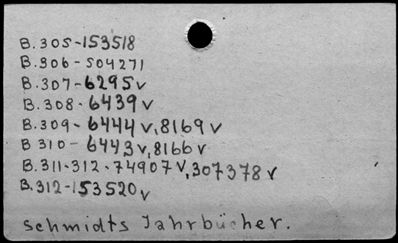 B.305-153518
B.306-504271
B.307-6295v
B.308-6439v
B.309-6444v,8169v
B 310-6443v,8166v
B.311-312-74907v,307378v
B.312-153520v
Schmidts Jahrbücher.